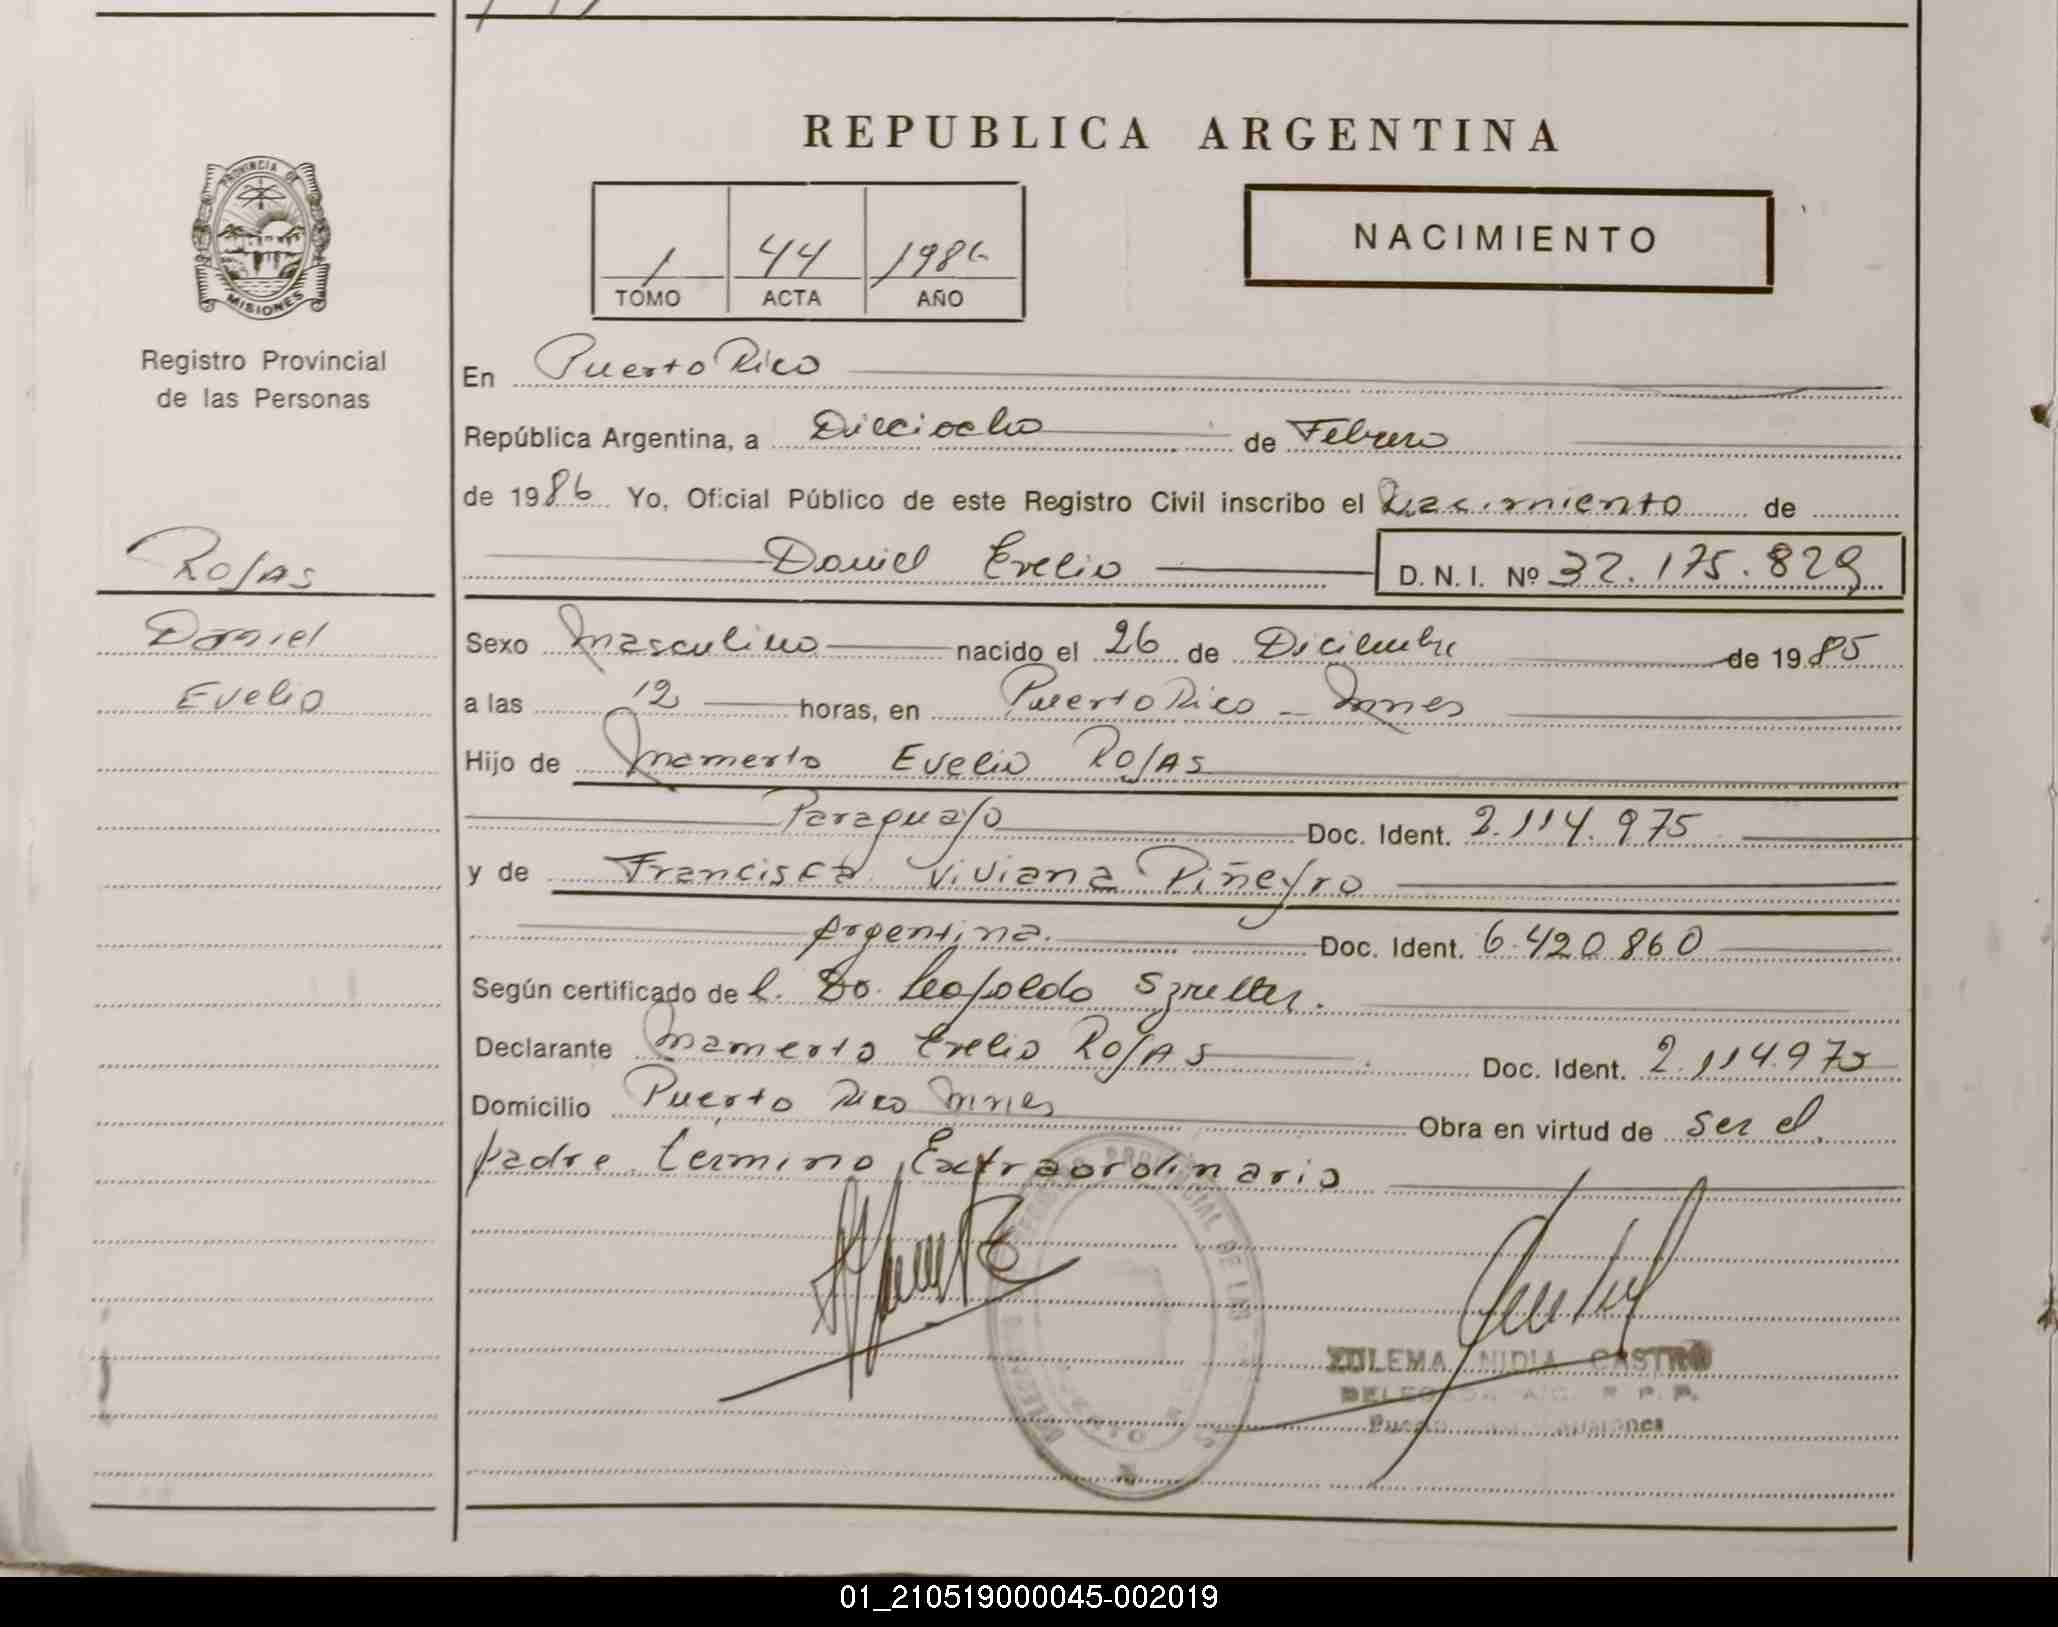 REPUBLICA ARGENTINA
PROVINCIA DE
MISIONES
Registro Provincial
de las Personas
1 44 1986
TOMO ACTA AÑO
NACIMIENTO
En Puerto Rico
República Argentina, a Dieciocho de Febrero
de 1986 Yo, Oficial Público de este Registro Civil inscribo el Nacimiento de
Daniel Evelio D. N. I. Nº 32.175.829
ROJAS
Daniel
Evelio
Sexo Masculino nacido el 26 de Diciembre de 1985
a las 12 horas, en Puerto Rico - Mnes
Hijo de Mamerto Evelio ROJAS
Paraguayo Doc. Ident. 2.114.975
y de Francisca Viviana Piñeyro
Argentina. Doc. Ident. 6.420.860
Según certificado de l. Do. Leopoldo
Declarante Mamerto Evelio ROJAS Doc. Ident. 2.114.975
Domicilio Puerto Rico Mnes Obra en virtud de ser el
padre. termino Extraordinario
PROVINCIAL DE LAS
ZULEMA NIDIA CASTRO
01_210519000045-002019